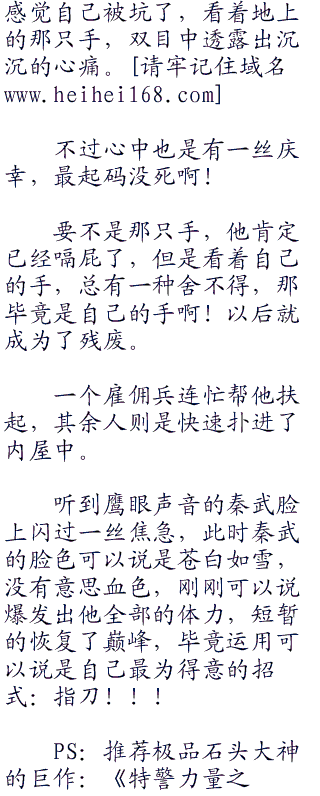 感觉自己被坑了，看着地上
的那只手，双目中透露出沉
沉的心痛。[请牢记住域名
www.heihei168.com]
不过心中也是有一丝庆
幸，最起码没死啊！
要不是那只手，他肯定
已经嗝屁了，但是看着自己
的手，总有一种舍不得，那
毕竟是自己的手啊！以后就
成为了残废。
一个雇佣兵连忙帮他扶
起，其余人则是快速扑进了
内屋中。
听到鹰眼声音的秦武脸
上闪过一丝焦急，此时秦武
的脸色可以说是苍白如雪，
没有意思血色，刚刚可以说
爆发出他全部的体力，短暂
的恢复了巅峰，毕竟运用可
以说是自己最为得意的招
式：指刀！！！
PS：推荐极品石头大神
的巨作：《特警力量之